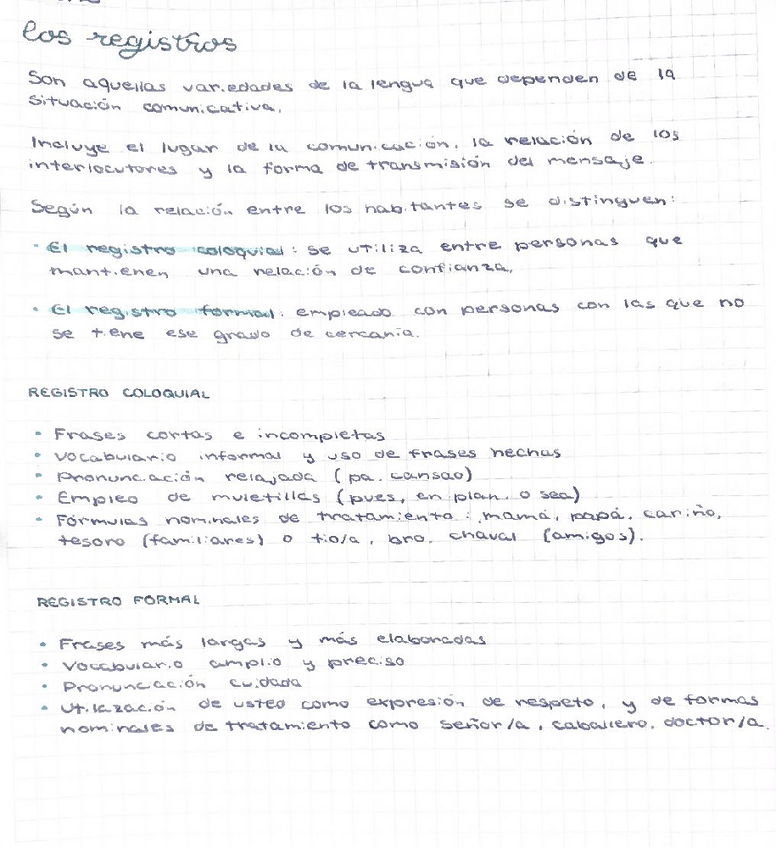 los registros
Son aquellas variedades de la lengua que dependen de la
situación comunicativa.
Incluye el lugar de la comunicación, la relación de los
interlocutores y la forma de transmisión del mensaje.
Según la relación entre los habitantes se distinguen:
· El registro coloquial: se utiliza entre personas que
mantienen una relación de confianza.
· El registro formal: empleado con personas con las que no
se tiene ese grado de cercanía.
REGISTRO COLOQUIAL
• Frases cortas e incompletas
• Vocabulario informal y uso de frases hechas
• Pronunciación relajada (pa, cansao)
• Empleo de muletillas (pues, en plan, o sea)
• Fórmulas nominales de tratamiento: mamá, papá, cariño,
tesoro (familiares) o tío/a, bro, chaval (amigos).
REGISTRO FORMAL
• Frases más largas y más elaboradas
• Vocabulario amplio y preciso
• Pronunciación cuidada
• Utilización de usted como expresión de respeto, y de formas
nominales de tratamiento como señor/a, caballero, doctor/a.